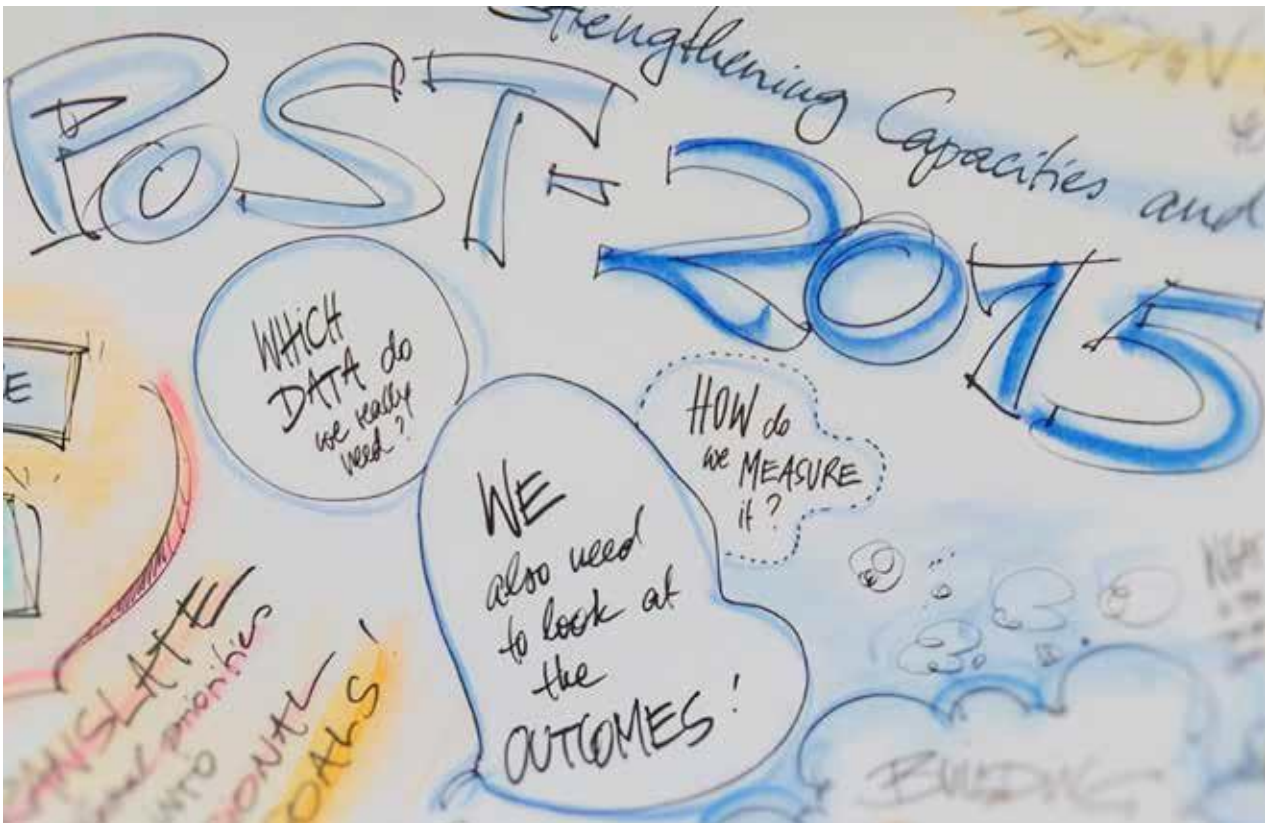 Strengthening Capacities and
POST-
2015
WHICH
DATA do
we really
need?
HOW do
we MEASURE
it?
WE
also need
to look at
the
OUTCOMES!
E
priorities
INTO
BUILDING